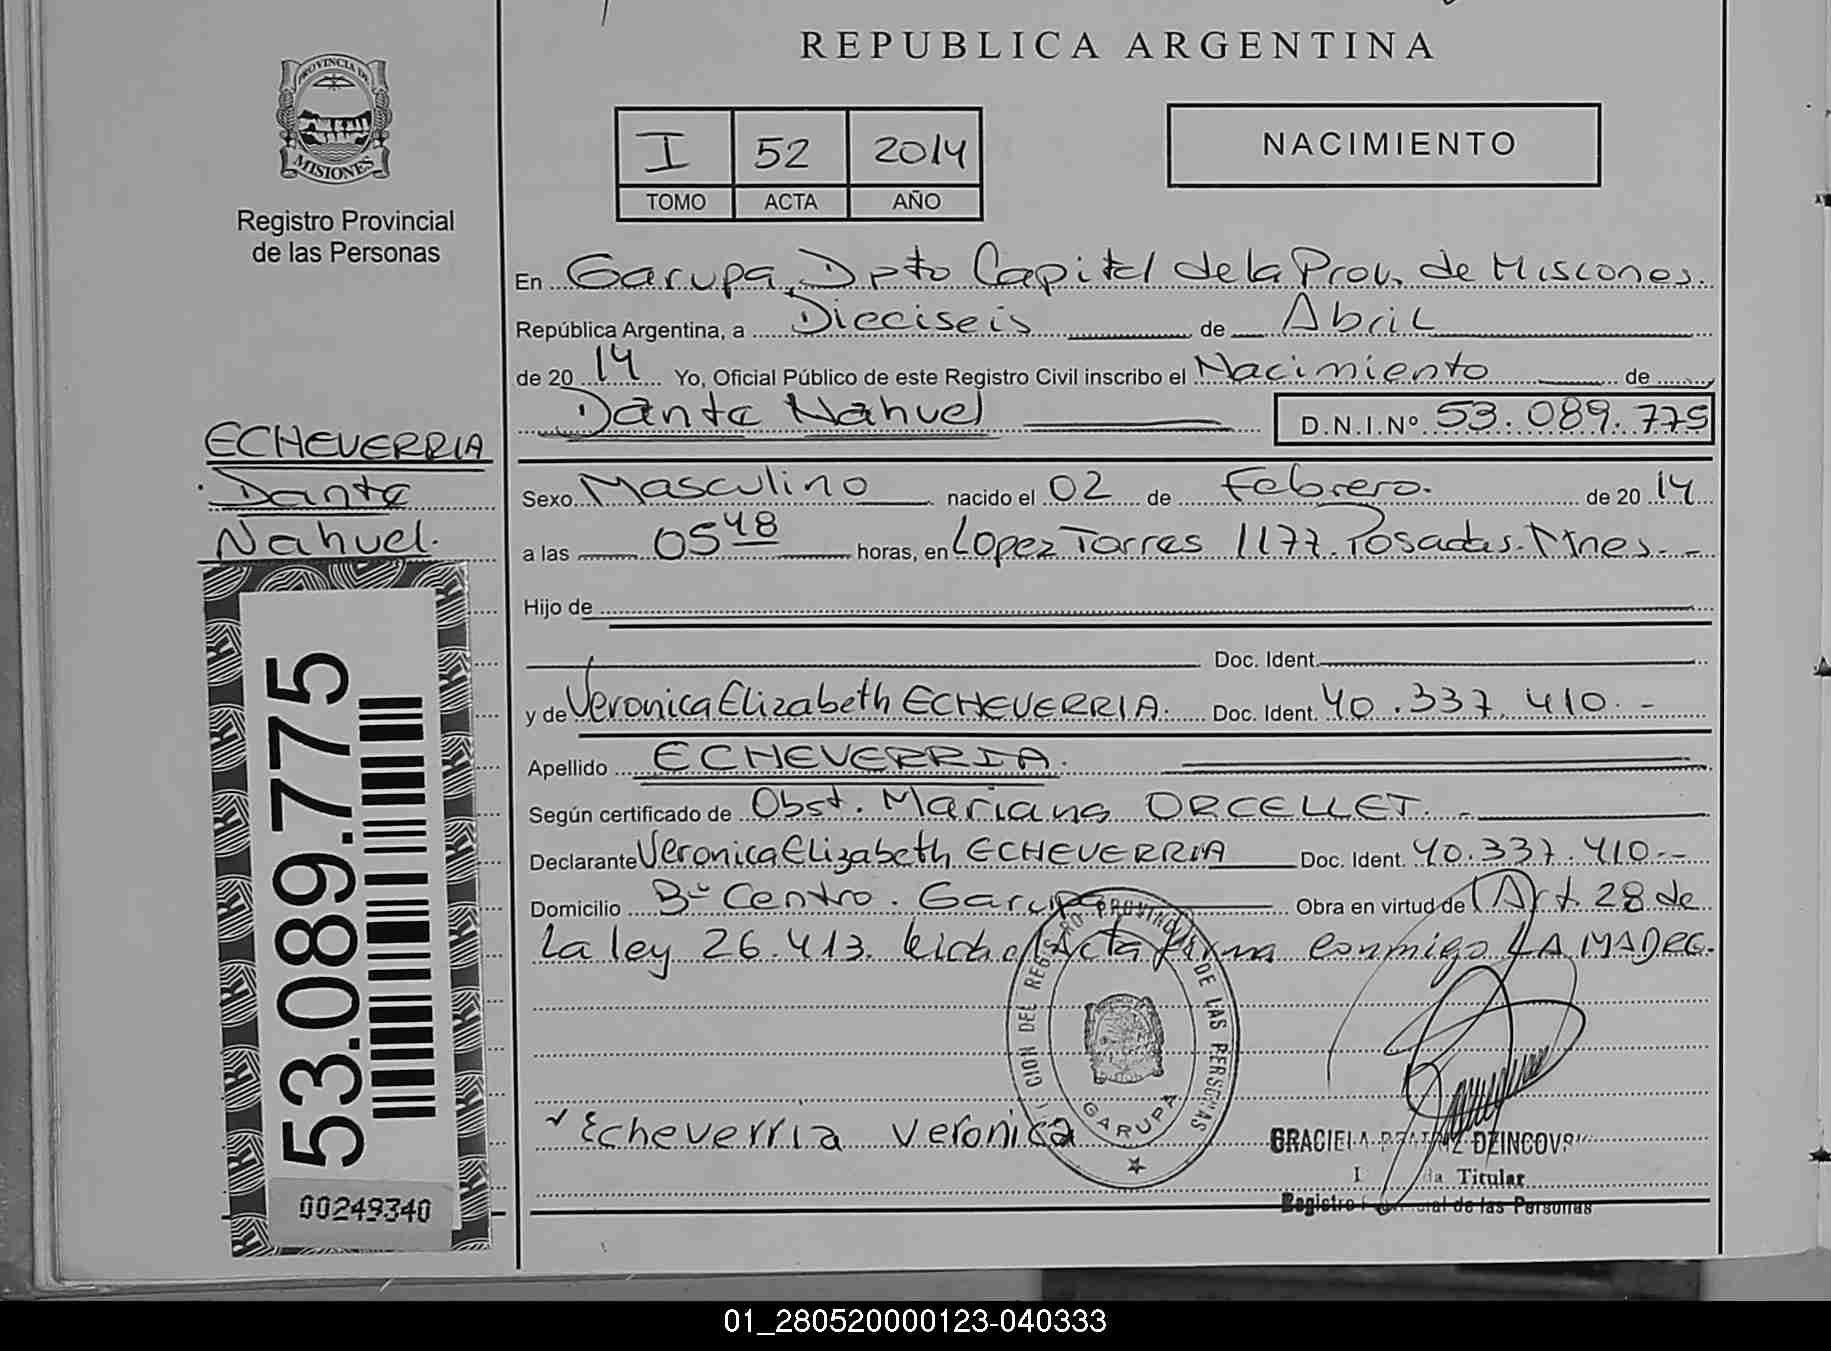 REPUBLICA ARGENTINA
PROVINCIA DE
MISIONES
Registro Provincial
de las Personas
I 52 2014
TOMO ACTA AÑO
NACIMIENTO
En Garupa, Dpto Capital de la Prov. de Misiones.
República Argentina, a Dieciseis de Abril
de 20 14 Yo, Oficial Público de este Registro Civil inscribo el Nacimiento de
Dante Nahuel D.N.I.Nº 53.089.775
ECHEVERRIA
Dante
Nahuel.
Sexo Masculino nacido el 02 de Febrero. de 20 14
a las 05 48 horas, en Lopez Torres 1177. Posadas. Mnes.-
Hijo de
Doc. Ident.
y de Veronica Elizabeth ECHEVERRIA. Doc. Ident. 40.337.410.-
Apellido ECHEVERRIA.
Según certificado de Obst. Mariana ORCELLET.-
Declarante Veronica Elizabeth ECHEVERRIA Doc. Ident. 40.337.410.-
Domicilio Bº Centro. Garupa Obra en virtud de (Art. 28 de
La ley 26.413. Acta firma conmigo LA MADRE.
53.089.775
00249340
Echeverria Veronica
CION DEL REGISTRO PROVINCIAL DE LAS PERSONAS
GARUPA
GRACIELA DZINCOVS
Titular
Registro de las Personas
01_280520000123-040333